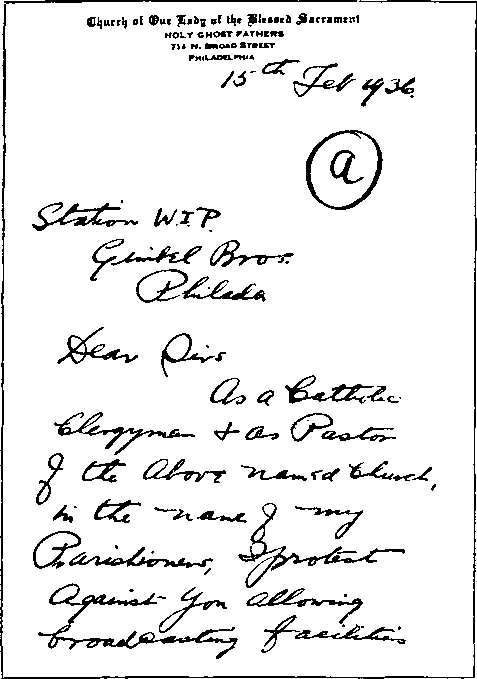 Church of Our Lady of the Blessed Sacrament
HOLY GHOST FATHERS
714 N. BROAD STREET
PHILADELPHIA
15th Feb 1936.
a
Station W.I.P.
Gimbel Bros.
Philada
Dear Sirs
As a Catholic
Clergyman & as Pastor
of the above named Church,
in the name of my
Parishioners, I protest
against you allowing
broadcasting facilities